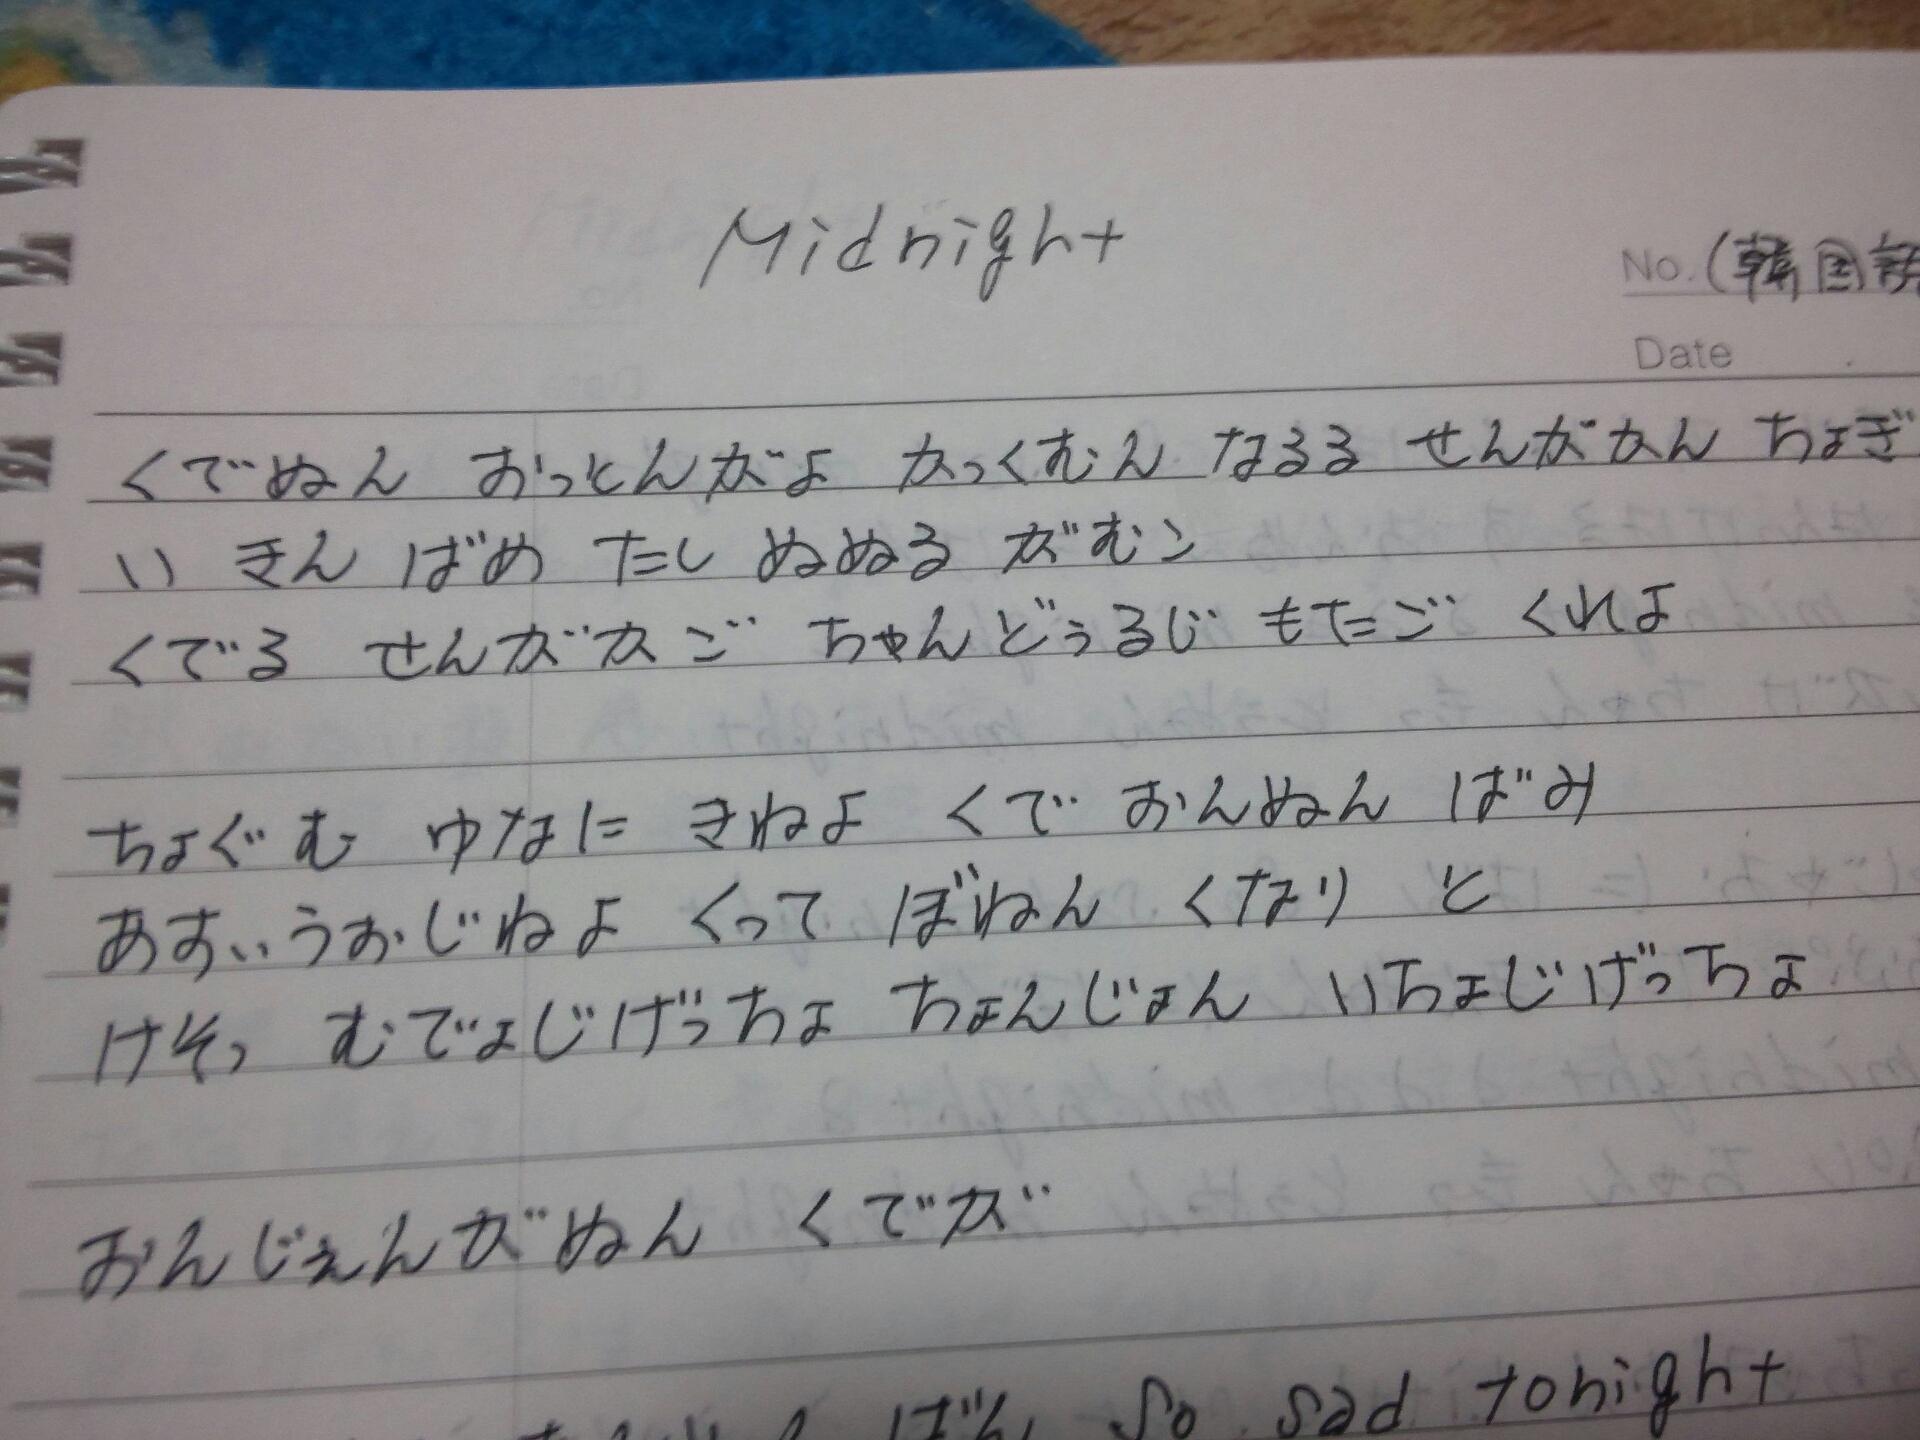 Midnight
No. (韓国語
Date
くでぬん おっとんがよ かっくむん なるる せんがかん ちょぎ
い きん ばめ たし ぬぬる がむン
くでる せんがかご ちゃんどぅるじ もたご くれよ
ちょぐむ ゆなに きねよ くで おんぬん ばみ
あすぃうおじねよ くって ぼねん くなり と
けそっ むでょじげっちょ ちょんじょん いちょじげっちょ
おんじぇんがぬん くでが
ばん so sad tonight